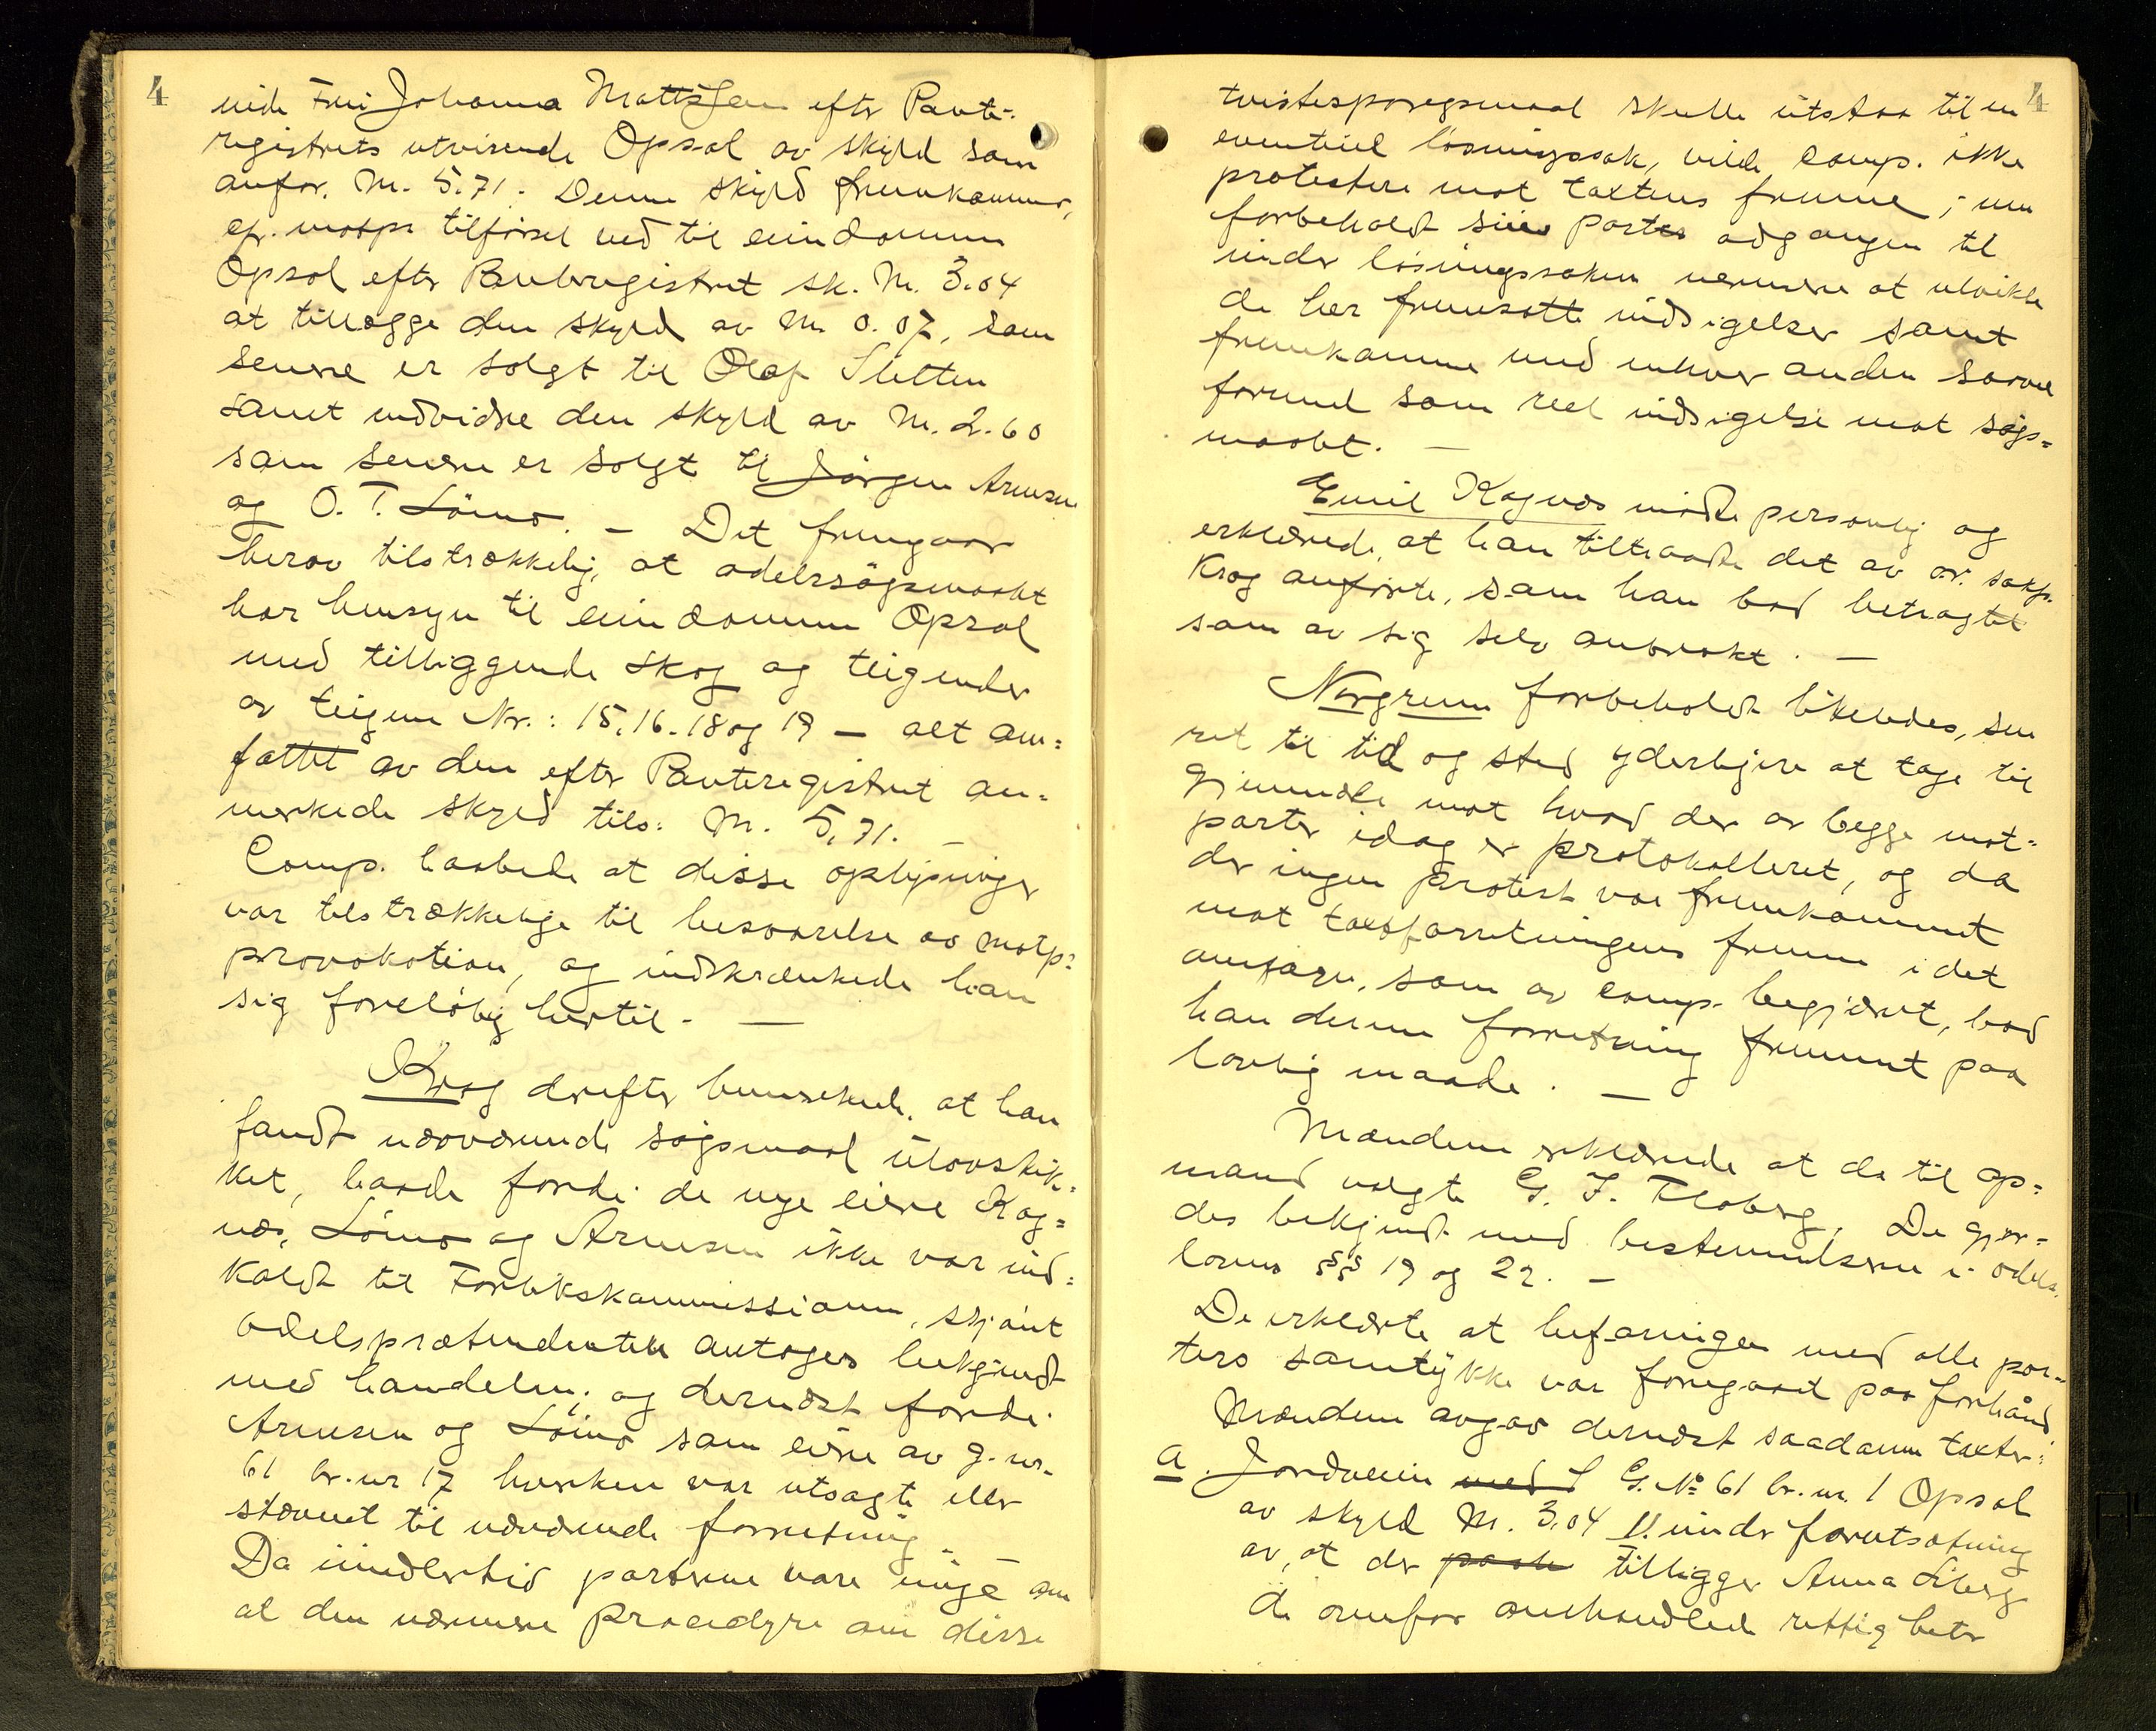 4
nide Fru Johanna Mattssen efter Pante-
registrets utvisende Opsal av skyld som
anfør. M. 5.71. Denne skyld fremkommer,
efr. motps tilførsel ved til eiendommen
Opsal efter Panteregistret sk. M. 3.04
at tillægge den skyld av M. 0.07, som
senere er solgt til Olaf Sletten
samt endvidre den skyld av M. 2.60
som senere er solgt til Jørgen Arnesen
og O. T. Lömo. – Det fremgaar
herav tilstrækkelig, at odelssøgsmaalet
har hensyn til eiendommen Opsal
med tilliggende skog og teigender
av teigene Nr.: 15, 16. 18 og 19 – alt om=
fattet av den efter Panteregistret an=
merkede skyld tils: M. 5,71. –
Comp. haabede at disse oplysninger
var tilstrækkelige til besvarelse av motp:
provokation, og indskrænkede han
sig foreløbig hertil. —
Krog derefter bemerkede, at han
fandt nærværende søgsmaal ulovskik=
ket, baade fordi de nye eiere Kog=
næs, Lömo og Arnesen ikke var ind=
kaldt til Forlikskommissionen, skjønt
odelsprætendenten antages bekjendt
med handelen; og dernæst fordi
Arnesen og Lömo som eiere av g. nr.
61 br. nr 17 hverken var utsagte eller
stævnet til nærværende forretning. –
Da imidlertid parterne vare enige om
at den nærmere procedyre om disse
4
tvistespørsmaal skulle utstaa til en
eventuel løsningssak, vilde comp. ikke
protestere mot taxtens fremme; men
forbeholdt sine parter adgangen til
under løsningssaken nærmere at utvikle
de her fremsatte indsigelser samt
fremkomme med enhver anden saavel
formel som reel indsigelse mot søgs=
maalet. –
Emil Kognæs mødte personlig og
erklærede, at han tiltraadte det av o.r. sakf.
Krog anførte, som han bad betragtet
som av sig selv anbrakt. –
Norgrenn forbeholdt likeledes, sin
ret til tid og sted yderligere at tage til
gjenmæle mot hvad der av begge mot=
parter idag er protokolleret, og da
der ingen protest var fremkommet
mot taxtforretningens fremme i det
omfang, som av comp. begjæret, bad
han denne forretning fremmet paa
lovlig maade. –
Mændene erklærede at de til op=
mand valgte G. J. Floberg, De gjor=
des bekjendt med bestemmelserne i odels=
lovens §§ 19 og 22. –
De erklærte at befaringen med alle par=
ters samtykke var foregaaet paa forhånd
Mændene avgav dernæst saadanne taxter:
a. Jordveien med S G. № 61 br. nr. 1 Opsal
av skyld M. 3,04 // under forutsætning
av, at der paale tilligger Anna Liberg
de ovenfor omhandlede rettigheter